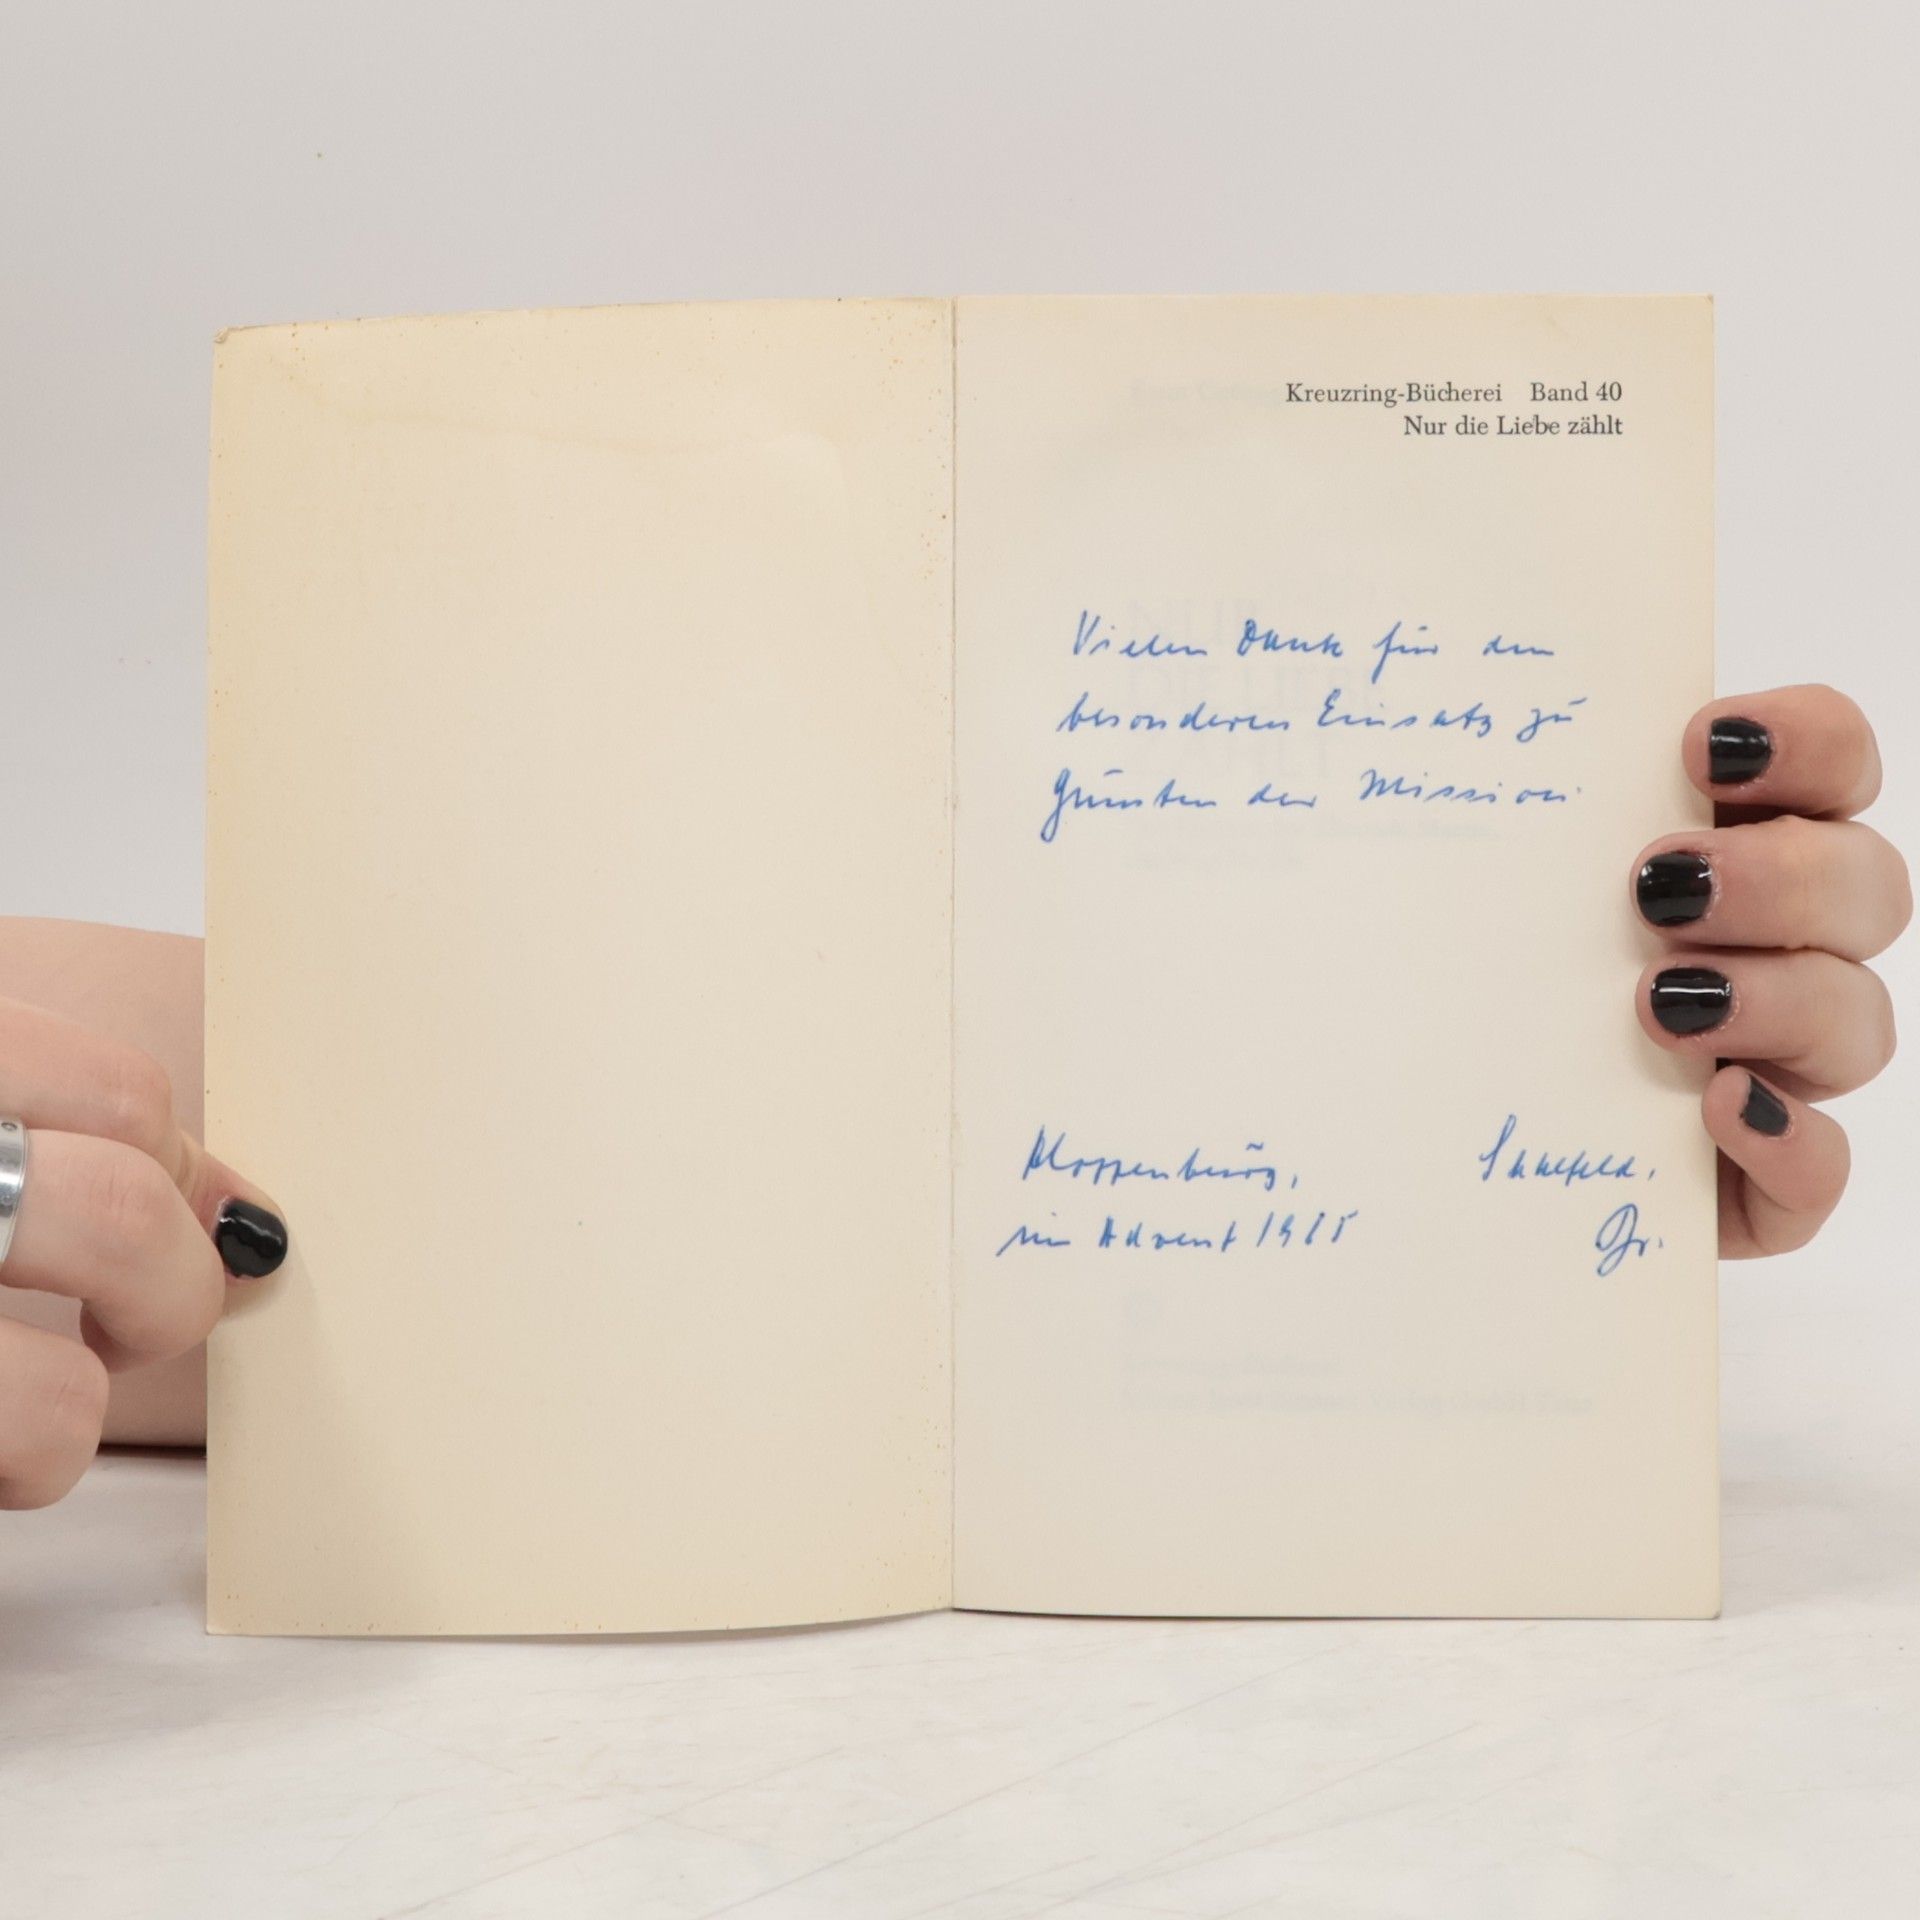 Kreuzring-Bücherei Band 40
Nur die Liebe zählt
Vielen Dank für den
besonderen Einsatz zu
Gunsten der Mission.
Kloppenburg, Saalfeld,
im Advent 1965 Pfr.